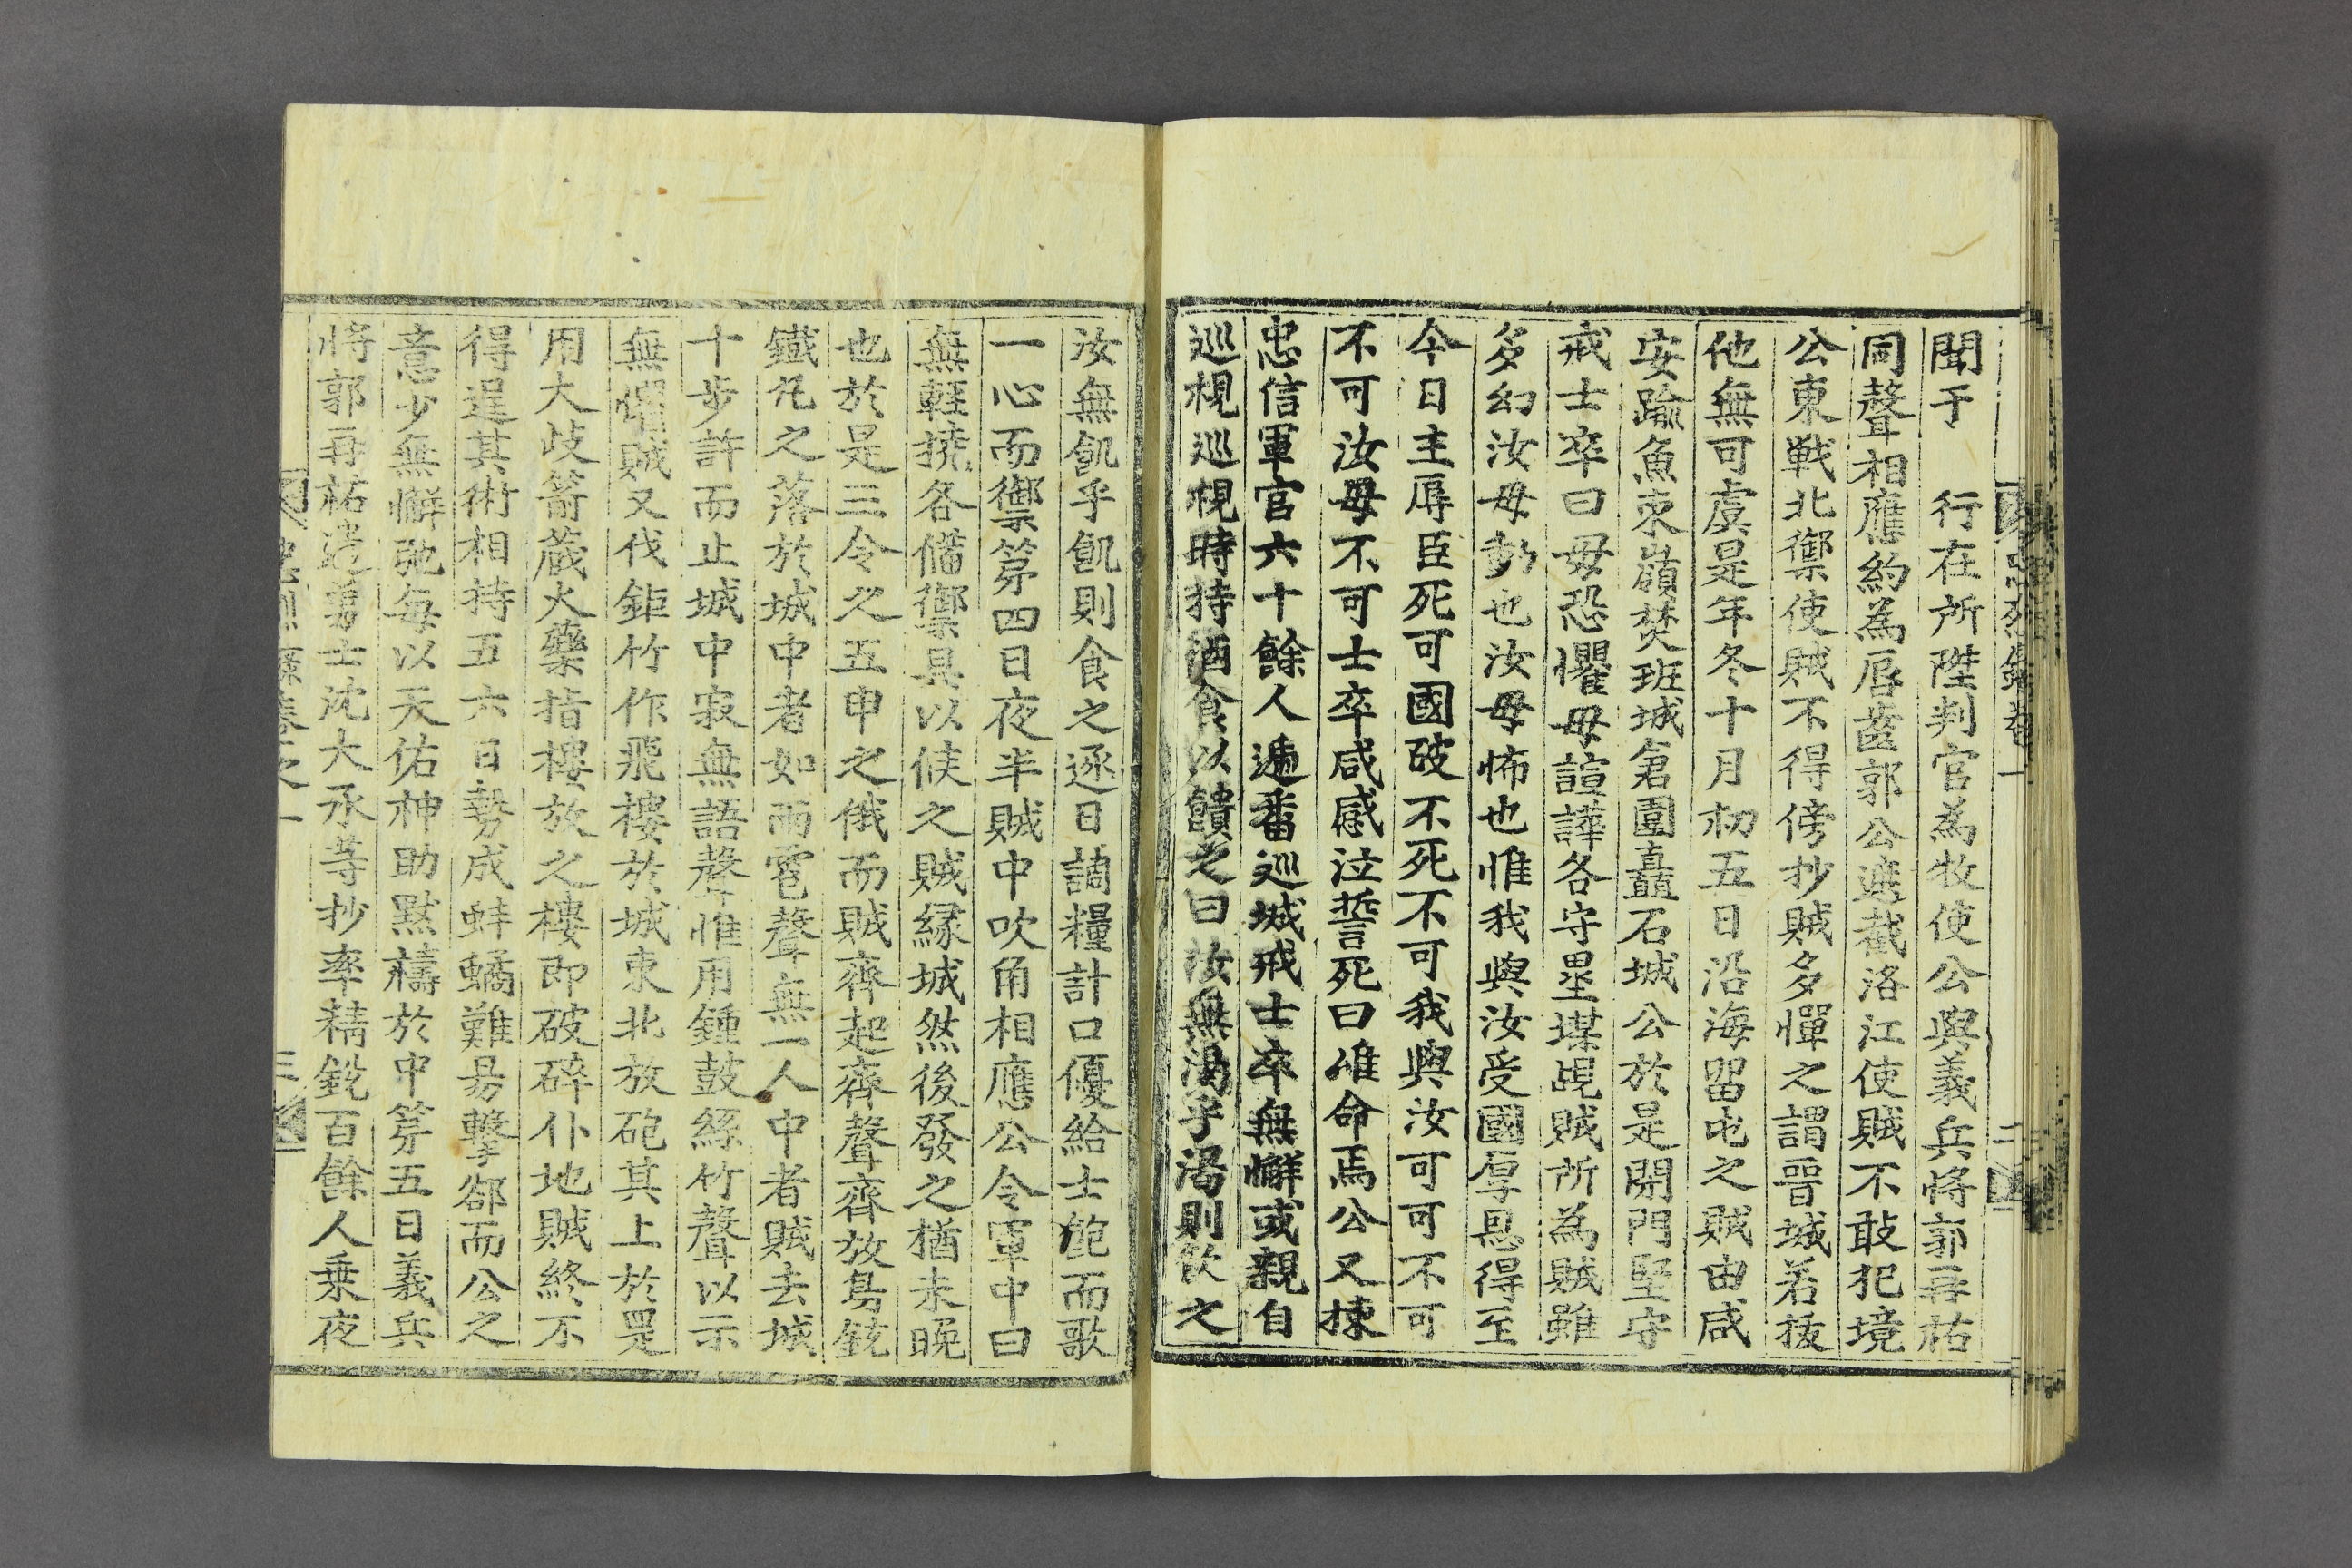 聞于　行在所陞判官為牧使公與義兵將郭再祐
同聲相應約為唇齒郭公遮截洛江使賊不敢犯境
公東戰北禦使賊不得傍抄賊多憚之謂晉城若拔
他無可虞是年冬十月初五日沿海留屯之賊由咸
安踰魚束嶺焚班城倉圍矗石城公於是開門堅守
戒士卒曰毋恐懼毋諠譁各守壘堞覘賊所為賊雖
多幻汝毋動也汝毋怖也惟我與汝受國厚恩得至
今日主辱臣死可國破不死不可我與汝可可不可
不可汝毋不可士卒咸感泣誓死曰惟命焉公又揀
忠信軍官六十餘人遞番巡城戒士卒無懈或親自
巡視巡視時持酒食以饋之曰汝無渴乎渴則飲之
汝無飢乎飢則食之逐日調糧計口優給士飽而歌
一心而禦第四日夜半賊中吹角相應公令軍中曰
無輕撓各備禦具以候之賊緣城然後發之猶未晚
也於是三令之五申之俄而賊齊起齊聲齊放鳥銃
鐵丸之落於城中者如雨雹聲無一人中者賊去城
十步許而止城中寂無語聲惟用鍾鼓絲竹聲以示
無懼賊又伐鉅竹作飛樓於城東北放砲其上於是
用大歧箭蔵火藥指樓放之樓即破碎仆地賊終不
得逞其術相持五六日勢成蚌蠣難易擊郤而公之
意少無懈弛每以天佑神助默禱於中第五日義兵
將郭再祐遣勇士沈大承等抄率精銳百餘人乘夜